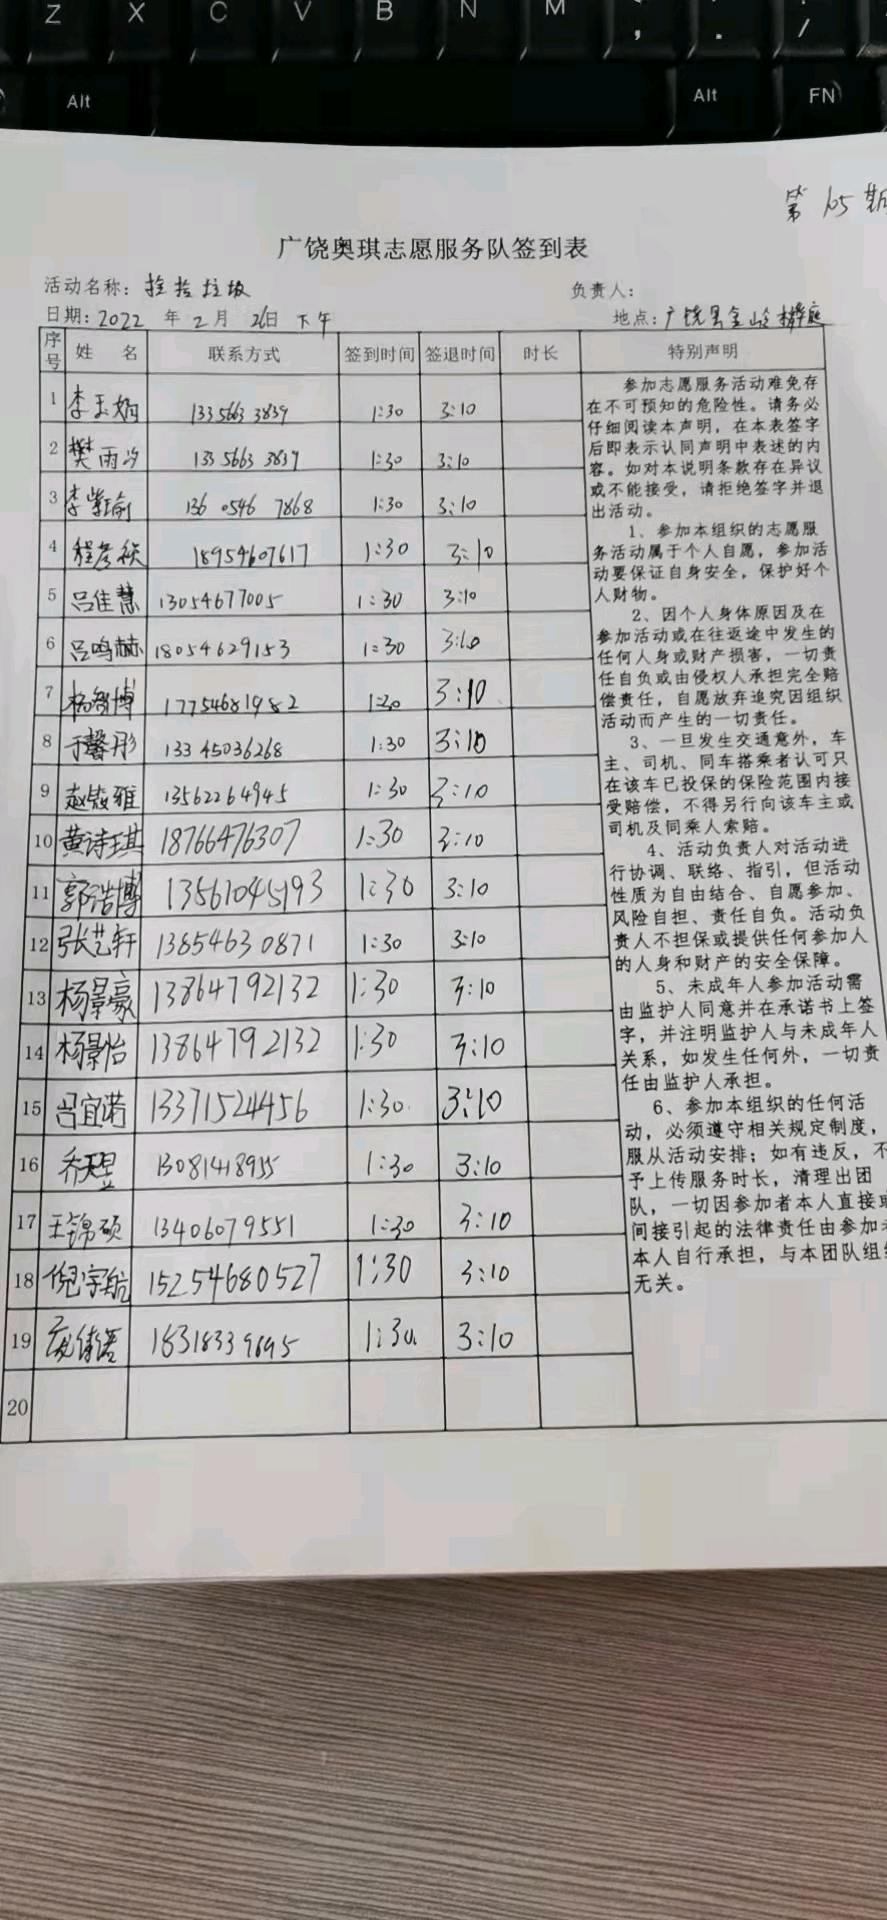 Z X C V B N M < , > . ? /
Alt Alt FN
第105期
广饶奥琪志愿服务队签到表
活动名称：捡拾垃圾 负责人：
日期：2022 年 2 月 26日 下午 地点：广饶县金岭
序号 姓 名 联系方式 签到时间 签退时间 时长 特别声明
1 李玉娟 133 5663 3839 1:30 3:10
2 樊雨汐 133 5663 3839 1:30 3:10
3 李紫瑜 136 0546 7868 1:30 3:10
4 程彦 18954607617 1:30 3:10
5 吕佳慧 13054677005 1:30 3:10
6 吕鸣赫 18054629153 1:30 3:10
7 杨智博 17754681982 1:30 3:10
8 于馨彤 13345036268 1:30 3:10
9 赵雅 13562264945 1:30 3:10
10 黄诗琪 18766476307 1:30 3:10
11 郭浩博 13561045193 1:30 3:10
12 张艺轩 13854630871 1:30 3:10
13 杨景豪 13864792132 1:30 3:10
14 杨景怡 13864792132 1:30 3:10
15 吕宜诺 13371524456 1:30 3:10
16 乔天昱 13081418955 1:30 3:10
17 王锦硕 13406079551 1:30 3:10
18 倪宇航 15254680527 1:30 3:10
19 1:30 3:10
20
参加志愿服务活动难免存
在不可预知的危险性。请务必
仔细阅读本声明，在本表签字
后即表示认同声明中表述的内
容。如对本说明条款存在异议
或不能接受，请拒绝签字并退
出活动。
1、参加本组织的志愿服
务活动属于个人自愿，参加活
动要保证自身安全，保护好个
人财物。
2、因个人身体原因及在
参加活动或在往返途中发生的
任何人身或财产损害，一切责
任自负或由侵权人承担完全赔
偿责任，自愿放弃追究因组织
活动而产生的一切责任。
3、一旦发生交通意外，车
主、司机、同车搭乘者认可只
在该车已投保的保险范围内接
受赔偿，不得另行向该车主或
司机及同乘人索赔。
4、活动负责人对活动进
行协调、联络、指引，但活动
性质为自由结合、自愿参加、
风险自担、责任自负。活动负
责人不担保或提供任何参加人
的人身和财产的安全保障。
5、未成年人参加活动需
由监护人同意并在承诺书上签
字，并注明监护人与未成年人
关系，如发生任何外，一切责
任由监护人承担。
6、参加本组织的任何活
动，必须遵守相关规定制度，
服从活动安排；如有违反，不
予上传服务时长，清理出团
队，一切因参加者本人直接或
间接引起的法律责任由参加者
本人自行承担，与本团队组织
无关。